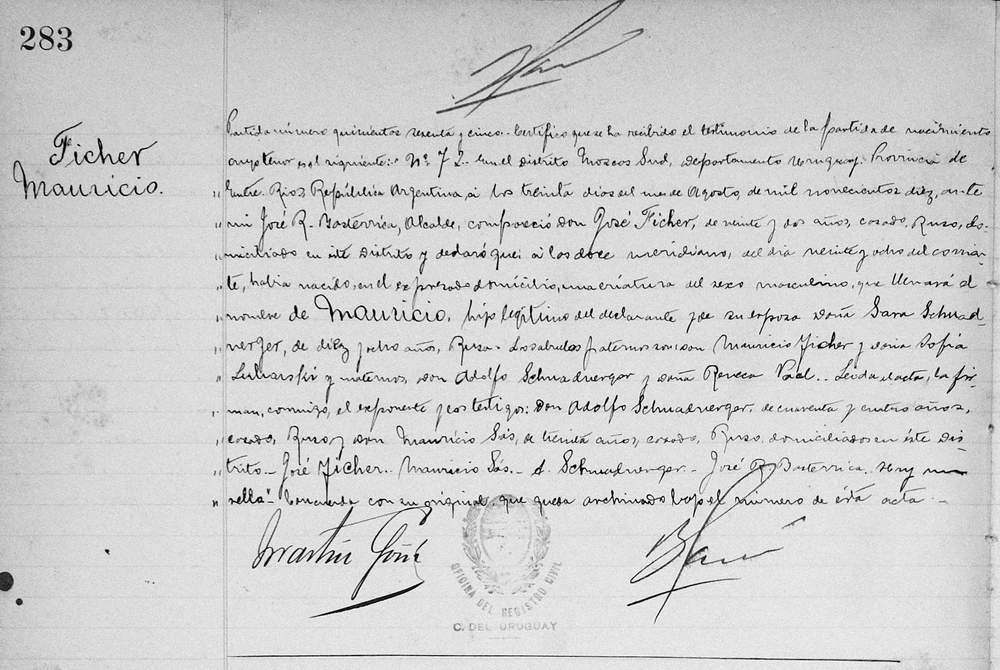 283
Ficher
Mauricio.
Partida número quinientos sesenta y cinco. Certifico que se ha recibido el testimonio de la partida de nacimiento
cuyo tenor es el siguiente: "Nº 72. En el distrito Moscas Sud, departamento Uruguay, Provincia de
" Entre Rios, República Argentina, á los treinta dias del mes de Agosto, de mil novecientos diez, ante
" mi José R. Basterrica, Alcalde, compareció Don José Ficher, de veinte y dos años, casado, Ruso, do-
" miciliado en este Distrito y declaró que: á las doce meridiano, del dia veinte y ocho del corrien-
" te, habia nacido, en el expresado domicilio, una criatura del sexo masculino, que llevará el
" nombre de Mauricio, hijo legítimo del declarante y de su esposa Doña Sara Schnad-
" verger, de diez y ocho años, Rusa. Los abuelos paternos son: Don Mauricio Ficher y Doña Sofía
" y maternos, Don Adolfo Schnadverger y Doña Reveca. Leida el acta, la fir-
" man, conmigo, el exponente y los testigos: Don Adolfo Schnadverger, de cuarenta y cuatro años,
" casado, Ruso y Don Mauricio Sás, de treinta años, casado, Ruso, domiciliados en éste Dis
" trito. José Ficher. Mauricio Sás. A. Schnadverger. José R. Basterrica. Hay un
" sello". Concuerda con su original que queda archivado bajo el número de ésta acta.
Martin Goñi
OFICINA DEL REGISTRO CIVIL
C. DEL URUGUAY